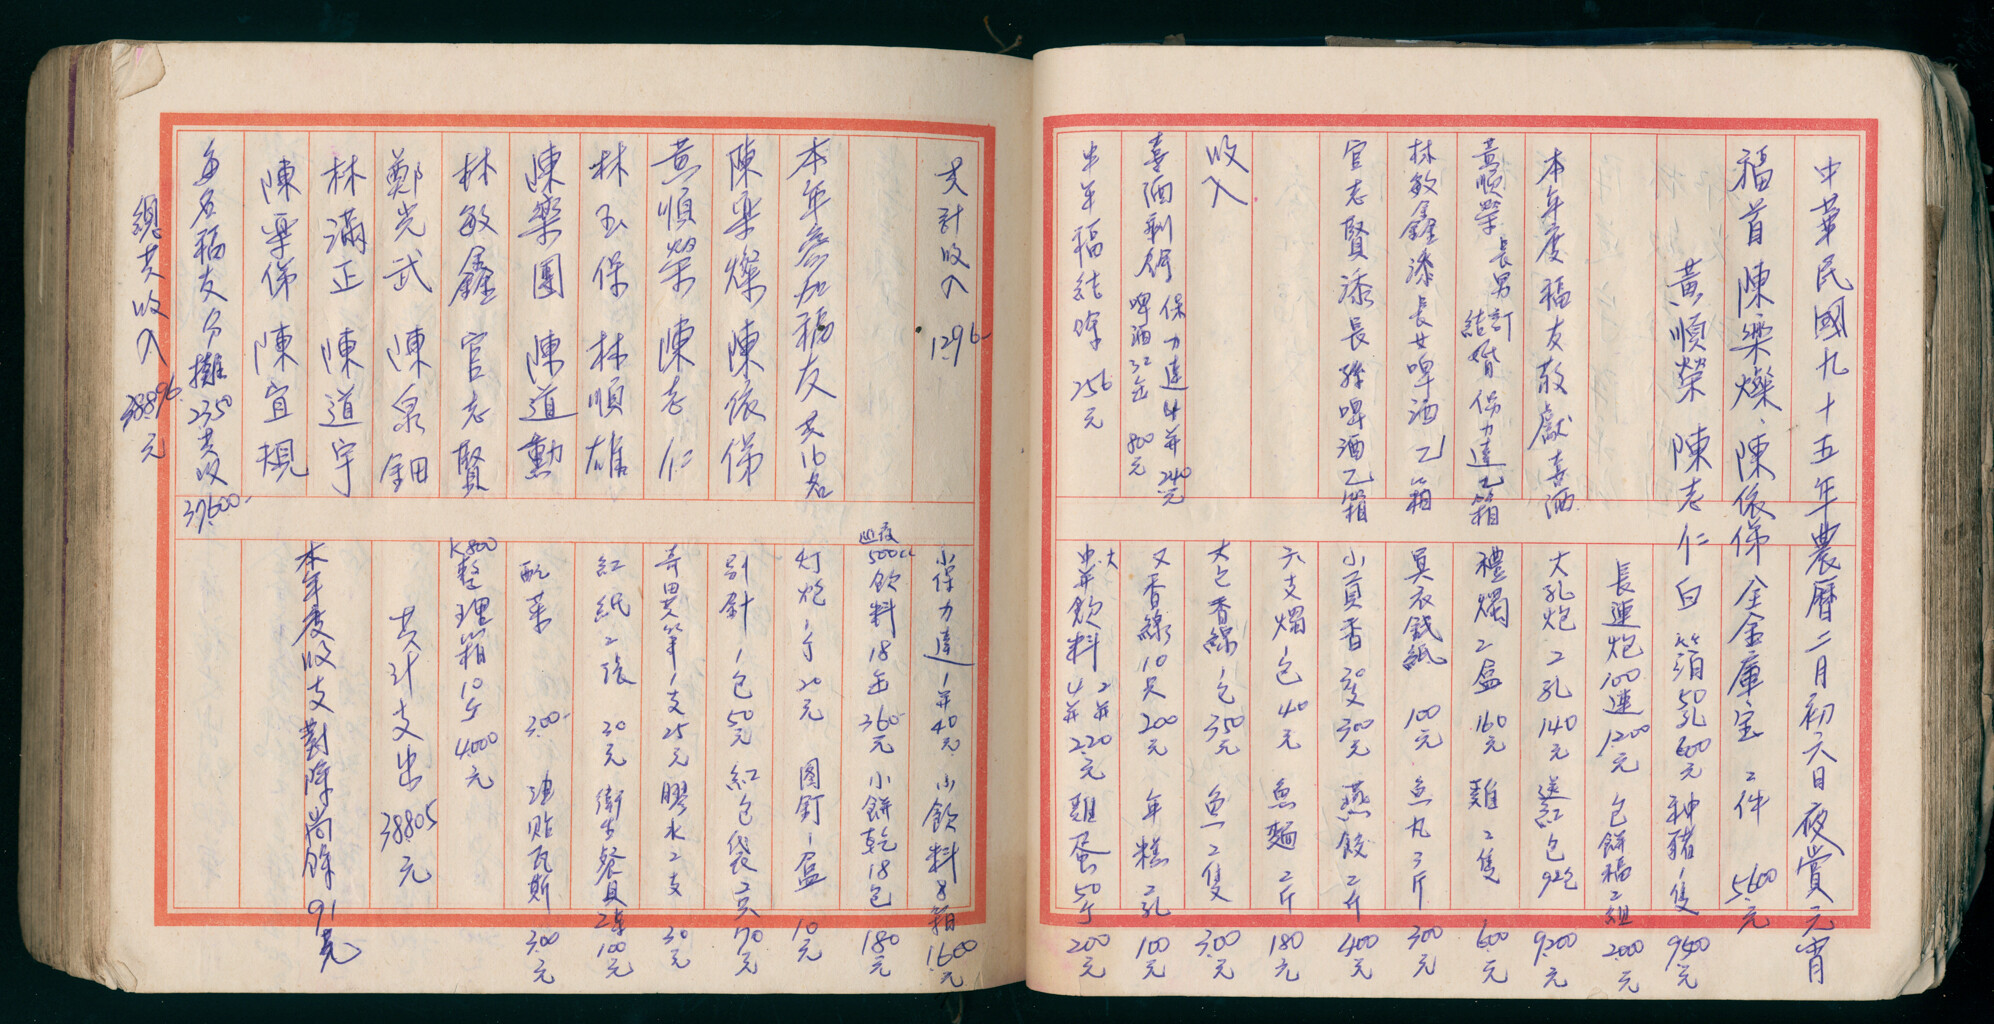 中華民國九十五年農曆二月初六日夜賞元宵
福首 陳樂燦、陳依俤 全金庫宝2件 5600元
黃順榮 陳志仁 白箔50孔600元 神豬1隻9400元
長連炮100連1200元 包餅福2組2000元
本年度福友敬獻喜酒 大孔炮2孔140元 送紅包92包9200元
黃順榮長男訂結婚保力達乙箱 禮燭2盒160元 雞2隻600元
林敏鑫添長女啤酒乙箱 冥衣錢紙100元 魚丸3斤300元
官志賢添長孫啤酒乙箱 小貢香 300元 燕餃2斤400元
六支燭1包40元 魚麵2斤180元
收入 大包香線1包350元 魚2隻300元
喜酒剩餘 保力達4并240元 啤酒32缶800元 又香線10只200元 年糕2孔100元
半年福結餘256元 大并飲料2并 中并飲料4并220元 雞蛋50个200元
共計收入1296- 小保力達1并40元 小飲料8箱1600元
500cc飲料18缶360元 小餅乾18包180元
本年參加福友共16名 灯炮1个20元 图釘1盒10元
陳樂燦 陳依俤 別針1包50元 紅包袋 70元
黃順榮 陳志仁 奇異筆1支25元 膠水2支30元
林玉保 林順雄 紅紙2張20元 衛生餐具 100元
陳樂團 陳道勳 配菜300- 油貼瓦斯300元
林敏鑫 官志賢 K800整理箱10个4000元
鄭光武 陳泉鈿 共計支出38805元
林滿正 陳道宇 本年度收支對除尚餘91元
陳平俤 陳宜規
每名福友分攤2350共收37600-
總共收入38896元